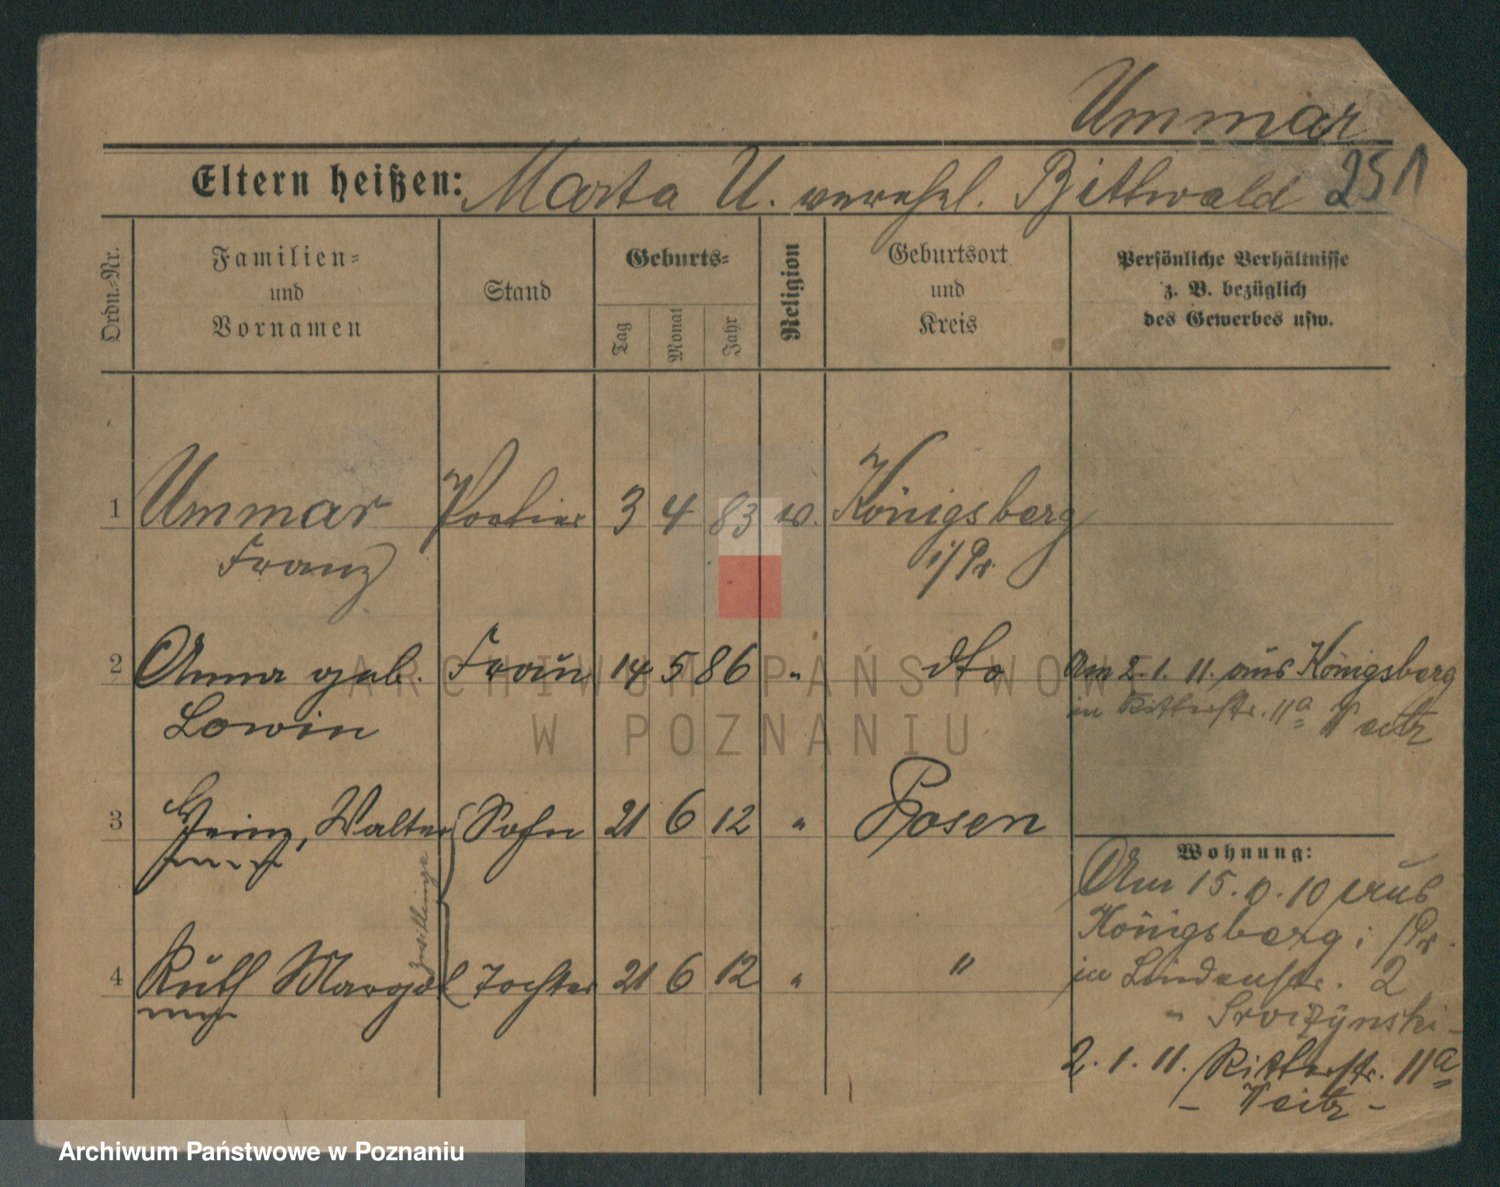 Ummar
Eltern heißen: Marta U. verehel. Bittwald 251
Ordn.-Nr.
Familien- und Vornamen
Stand
Geburts-
Tag
Monat
Jahr
Religion
Geburtsort und Kreis
Persönliche Verhältnisse
z. B. bezüglich
des Gewerbes usw.
1 Ummar Portier 3 4 83 Königsberg
Franz i/Pr
2 Anna geb. Frau 14 5 86 " dto Am 2.1.11. aus Königsberg
Lowin in Ritterstr. 11a
3 Heinz, Walter Sohn 21 6 12 " Posen
Zwillinge
4 Ruth Margot Tochter 21 6 12 " "
Wohnung:
Am 15. 10 aus
Königsberg i/Pr.
in Lindenstr. 2
2.1.11. Ritterstr. 11a
ARCHIWUM PAŃSTWOWE
W POZNANIU
Archiwum Państwowe w Poznaniu